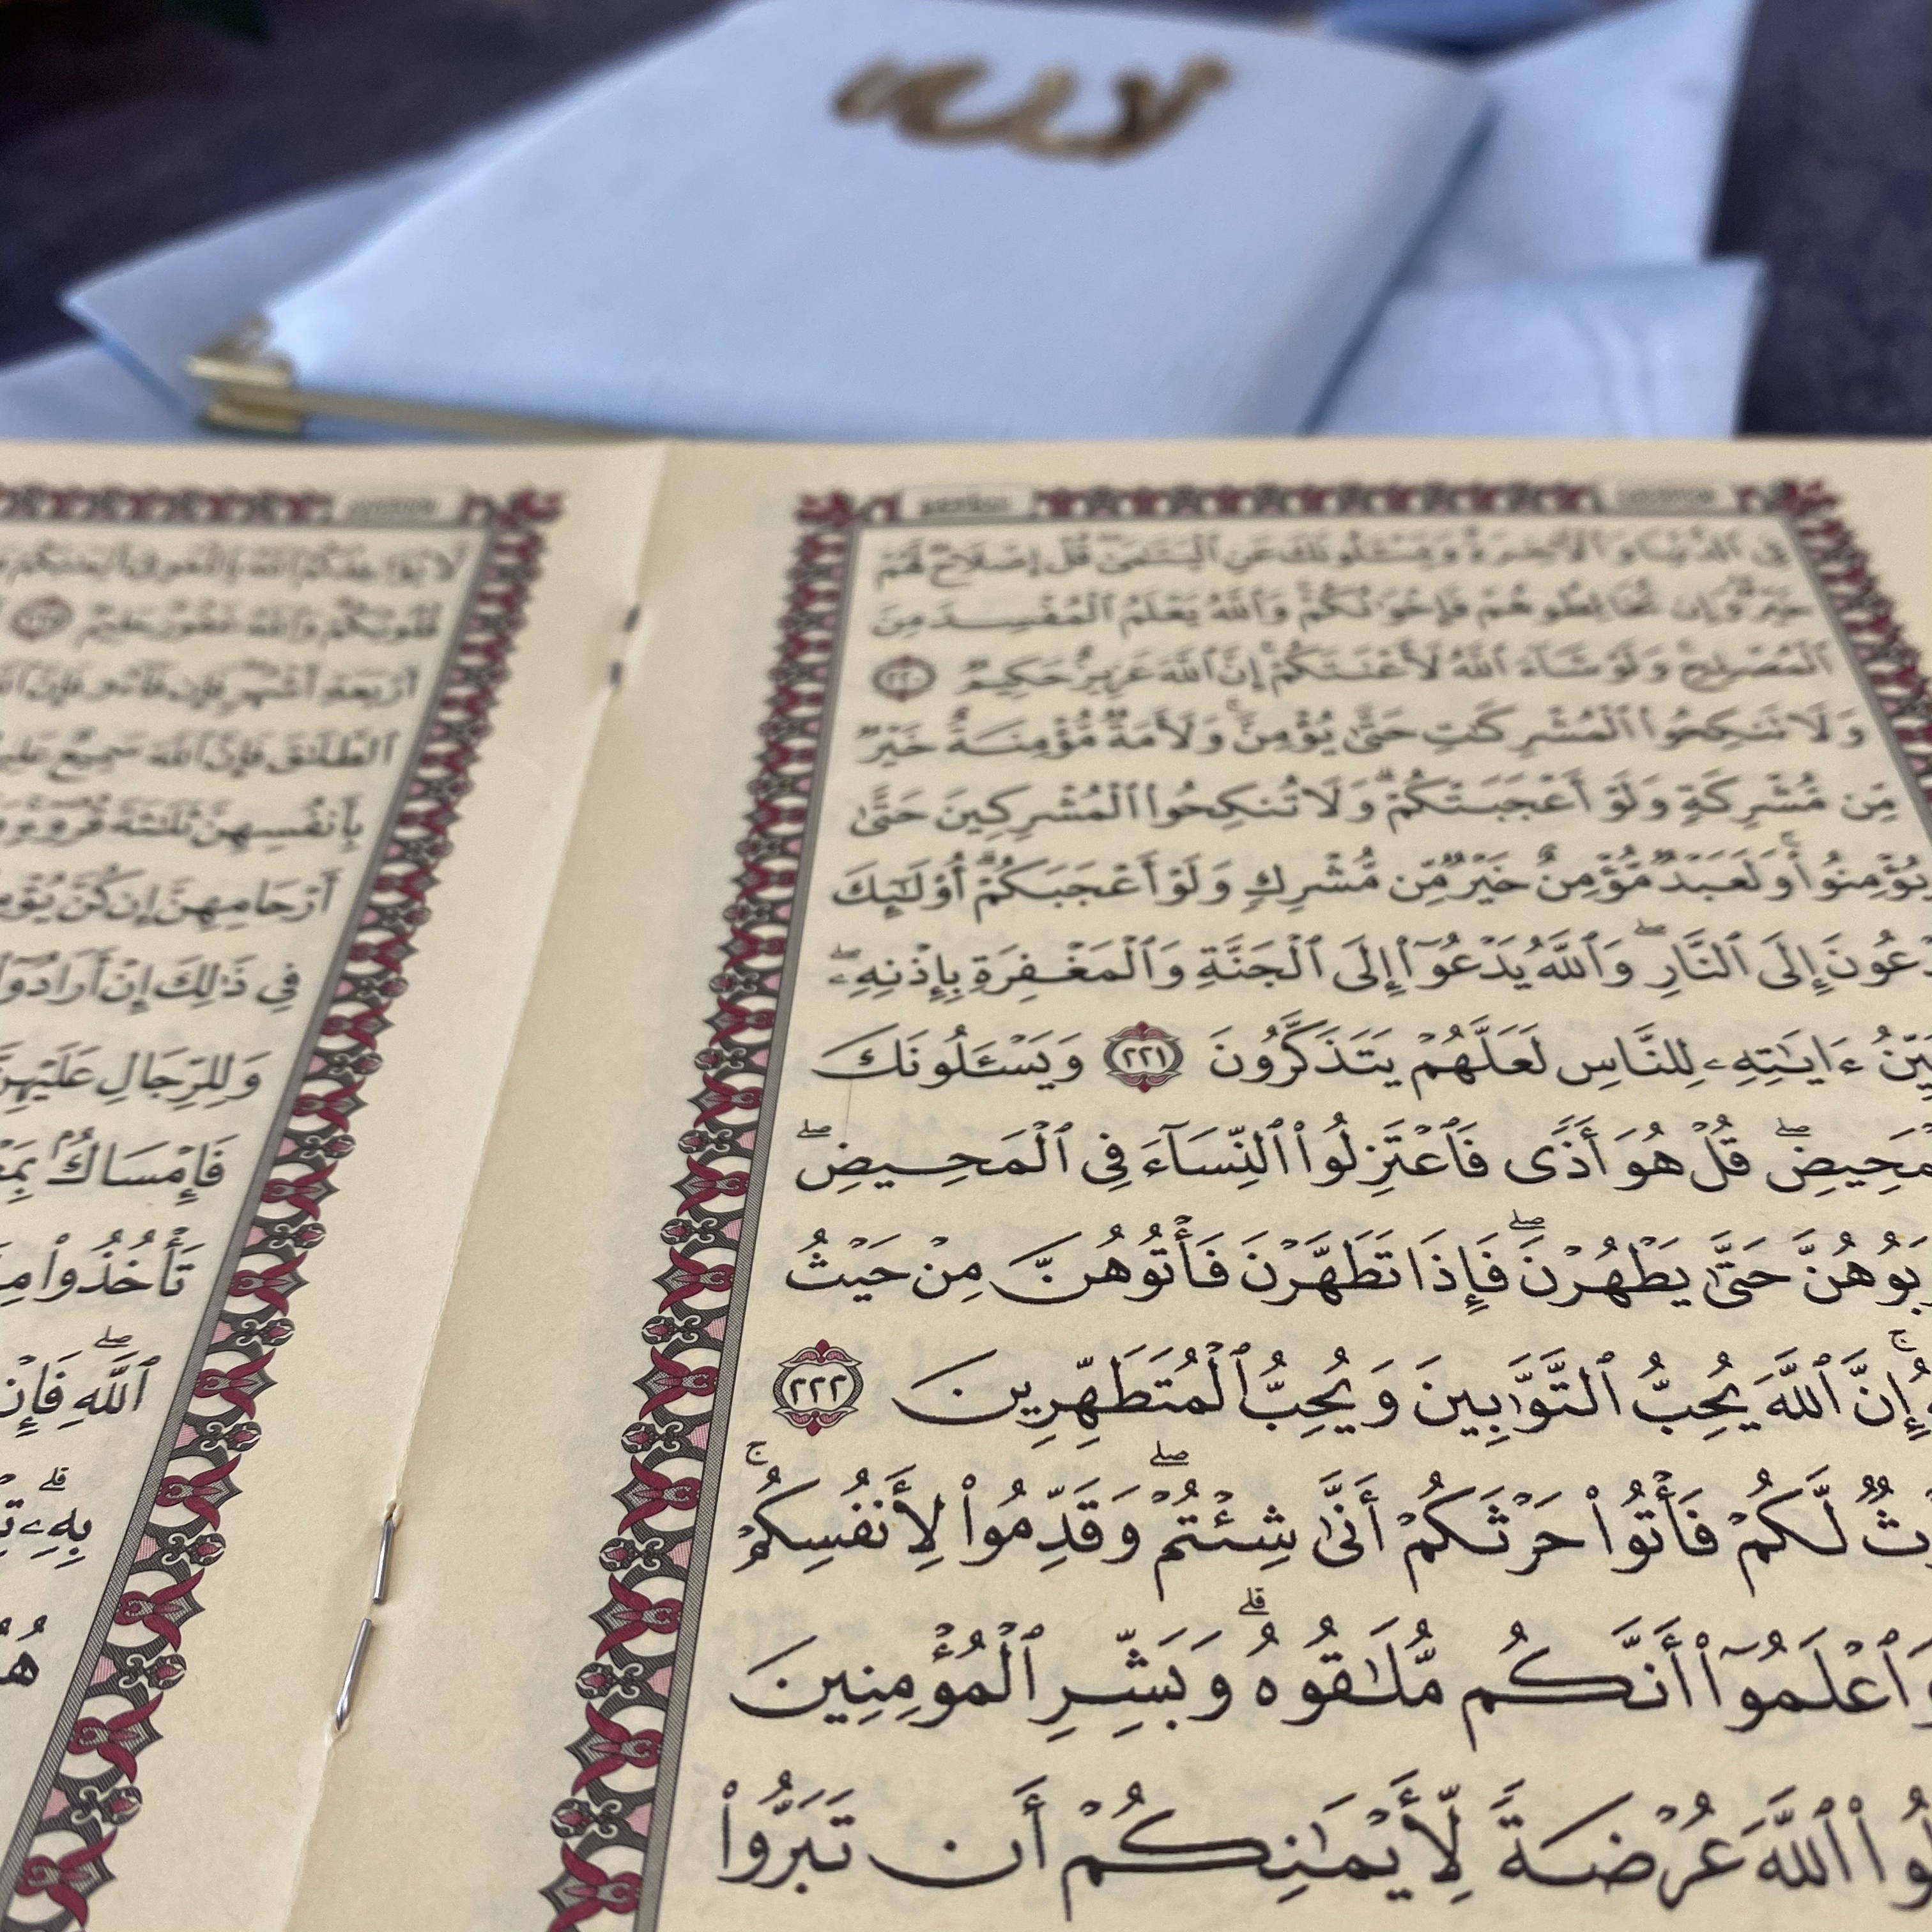 الله
فِي ٱلدُّنْيَا وَٱلْأٓخِرَةِ وَيَسْـَٔلُونَكَ عَنِ ٱلْيَتَٰمَىٰ قُلْ إِصْلَاحٌ لَّهُمْ
خَيْرٌ وَإِن تُخَالِطُوهُمْ فَإِخْوَٰنُكُمْ وَٱللَّهُ يَعْلَمُ ٱلْمُفْسِدَ مِنَ
ٱلْمُصْلِحِ وَلَوْ شَآءَ ٱللَّهُ لَأَعْنَتَكُمْ إِنَّ ٱللَّهَ عَزِيزٌ حَكِيمٌ ٢٢٠
وَلَا تَنكِحُوا۟ ٱلْمُشْرِكَٰتِ حَتَّىٰ يُؤْمِنَّ ۚ وَلَأَمَةٌ مُّؤْمِنَةٌ خَيْرٌ
مِّن مُّشْرِكَةٍ وَلَوْ أَعْجَبَتْكُمْ ۗ وَلَا تُنكِحُوا۟ ٱلْمُشْرِكِينَ حَتَّىٰ
يُؤْمِنُوا۟ ۚ وَلَعَبْدٌ مُّؤْمِنٌ خَيْرٌ مِّن مُّشْرِكٍ وَلَوْ أَعْجَبَكُمْ ۗ أُو۟لَٰٓئِكَ
يَدْعُونَ إِلَى ٱلنَّارِ ۖ وَٱللَّهُ يَدْعُوٓا۟ إِلَى ٱلْجَنَّةِ وَٱلْمَغْفِرَةِ بِإِذْنِهِۦ ۖ
ءَايَٰتِهِۦ لِلنَّاسِ لَعَلَّهُمْ يَتَذَكَّرُونَ ٢٢١ وَيَسْـَٔلُونَكَ
ٱلْمَحِيضِ ۖ قُلْ هُوَ أَذًى فَٱعْتَزِلُوا۟ ٱلنِّسَآءَ فِي ٱلْمَحِيضِ ۖ
حَتَّىٰ يَطْهُرْنَ ۖ فَإِذَا تَطَهَّرْنَ فَأْتُوهُنَّ مِنْ حَيْثُ
إِنَّ ٱللَّهَ يُحِبُّ ٱلتَّوَّٰبِينَ وَيُحِبُّ ٱلْمُتَطَهِّرِينَ ٢٢٢
لَّكُمْ فَأْتُوا۟ حَرْثَكُمْ أَنَّىٰ شِئْتُمْ ۖ وَقَدِّمُوا۟ لِأَنفُسِكُمْ ۚ
وَٱعْلَمُوٓا۟ أَنَّكُم مُّلَٰقُوهُ ۗ وَبَشِّرِ ٱلْمُؤْمِنِينَ
ٱللَّهَ عُرْضَةً لِّأَيْمَٰنِكُمْ أَن تَبَرُّوا۟
لَّا يُؤَاخِذُكُمُ ٱللَّهُ بِٱللَّغْوِ فِيٓ أَيْمَٰنِكُمْ
قُلُوبُكُمْ وَٱللَّهُ غَفُورٌ حَلِيمٌ
أَرْبَعَةِ أَشْهُرٍ فَإِن فَآءُو فَإِنَّ ٱللَّهَ
ٱلطَّلَٰقَ فَإِنَّ ٱللَّهَ سَمِيعٌ عَلِيمٌ
بِأَنفُسِهِنَّ ثَلَٰثَةَ قُرُوٓءٍ
أَرْحَامِهِنَّ إِن كُنَّ
فِي ذَٰلِكَ إِنْ أَرَادُوٓا۟
وَلِلرِّجَالِ عَلَيْهِنَّ
فَإِمْسَاكٌۢ
تَأْخُذُوا۟
ٱللَّهِ ۖ فَإِنْ
بِهِۦ ۗ